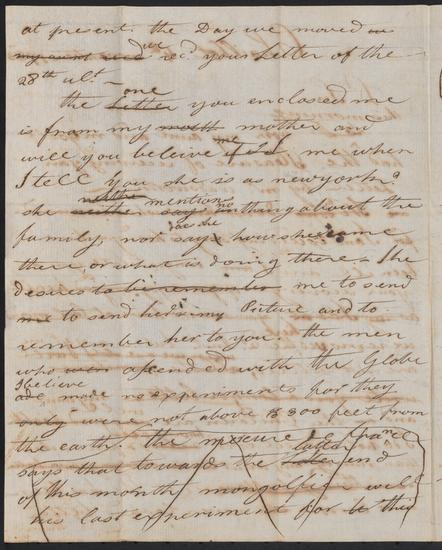 at present. the Day we moved in
my aunt and we recd your Letter of the
28th ulto –
the Letter one you enclosed me
is from my moth mother and
will you beleive me when
I tell you she is at newyork
she neither mention nothing about the
family, nor say how she came
there, or what is doing there – she
desires to be remember me to send
me to send her my Picture and to
remember her to you. the men
who were ascended with the Globe
I believe made no experiments for they
only were not above 8 300 feet from
the earth. the mercure de france
says that towards the latter end
of this month mongolfier will
his last experiment for to this